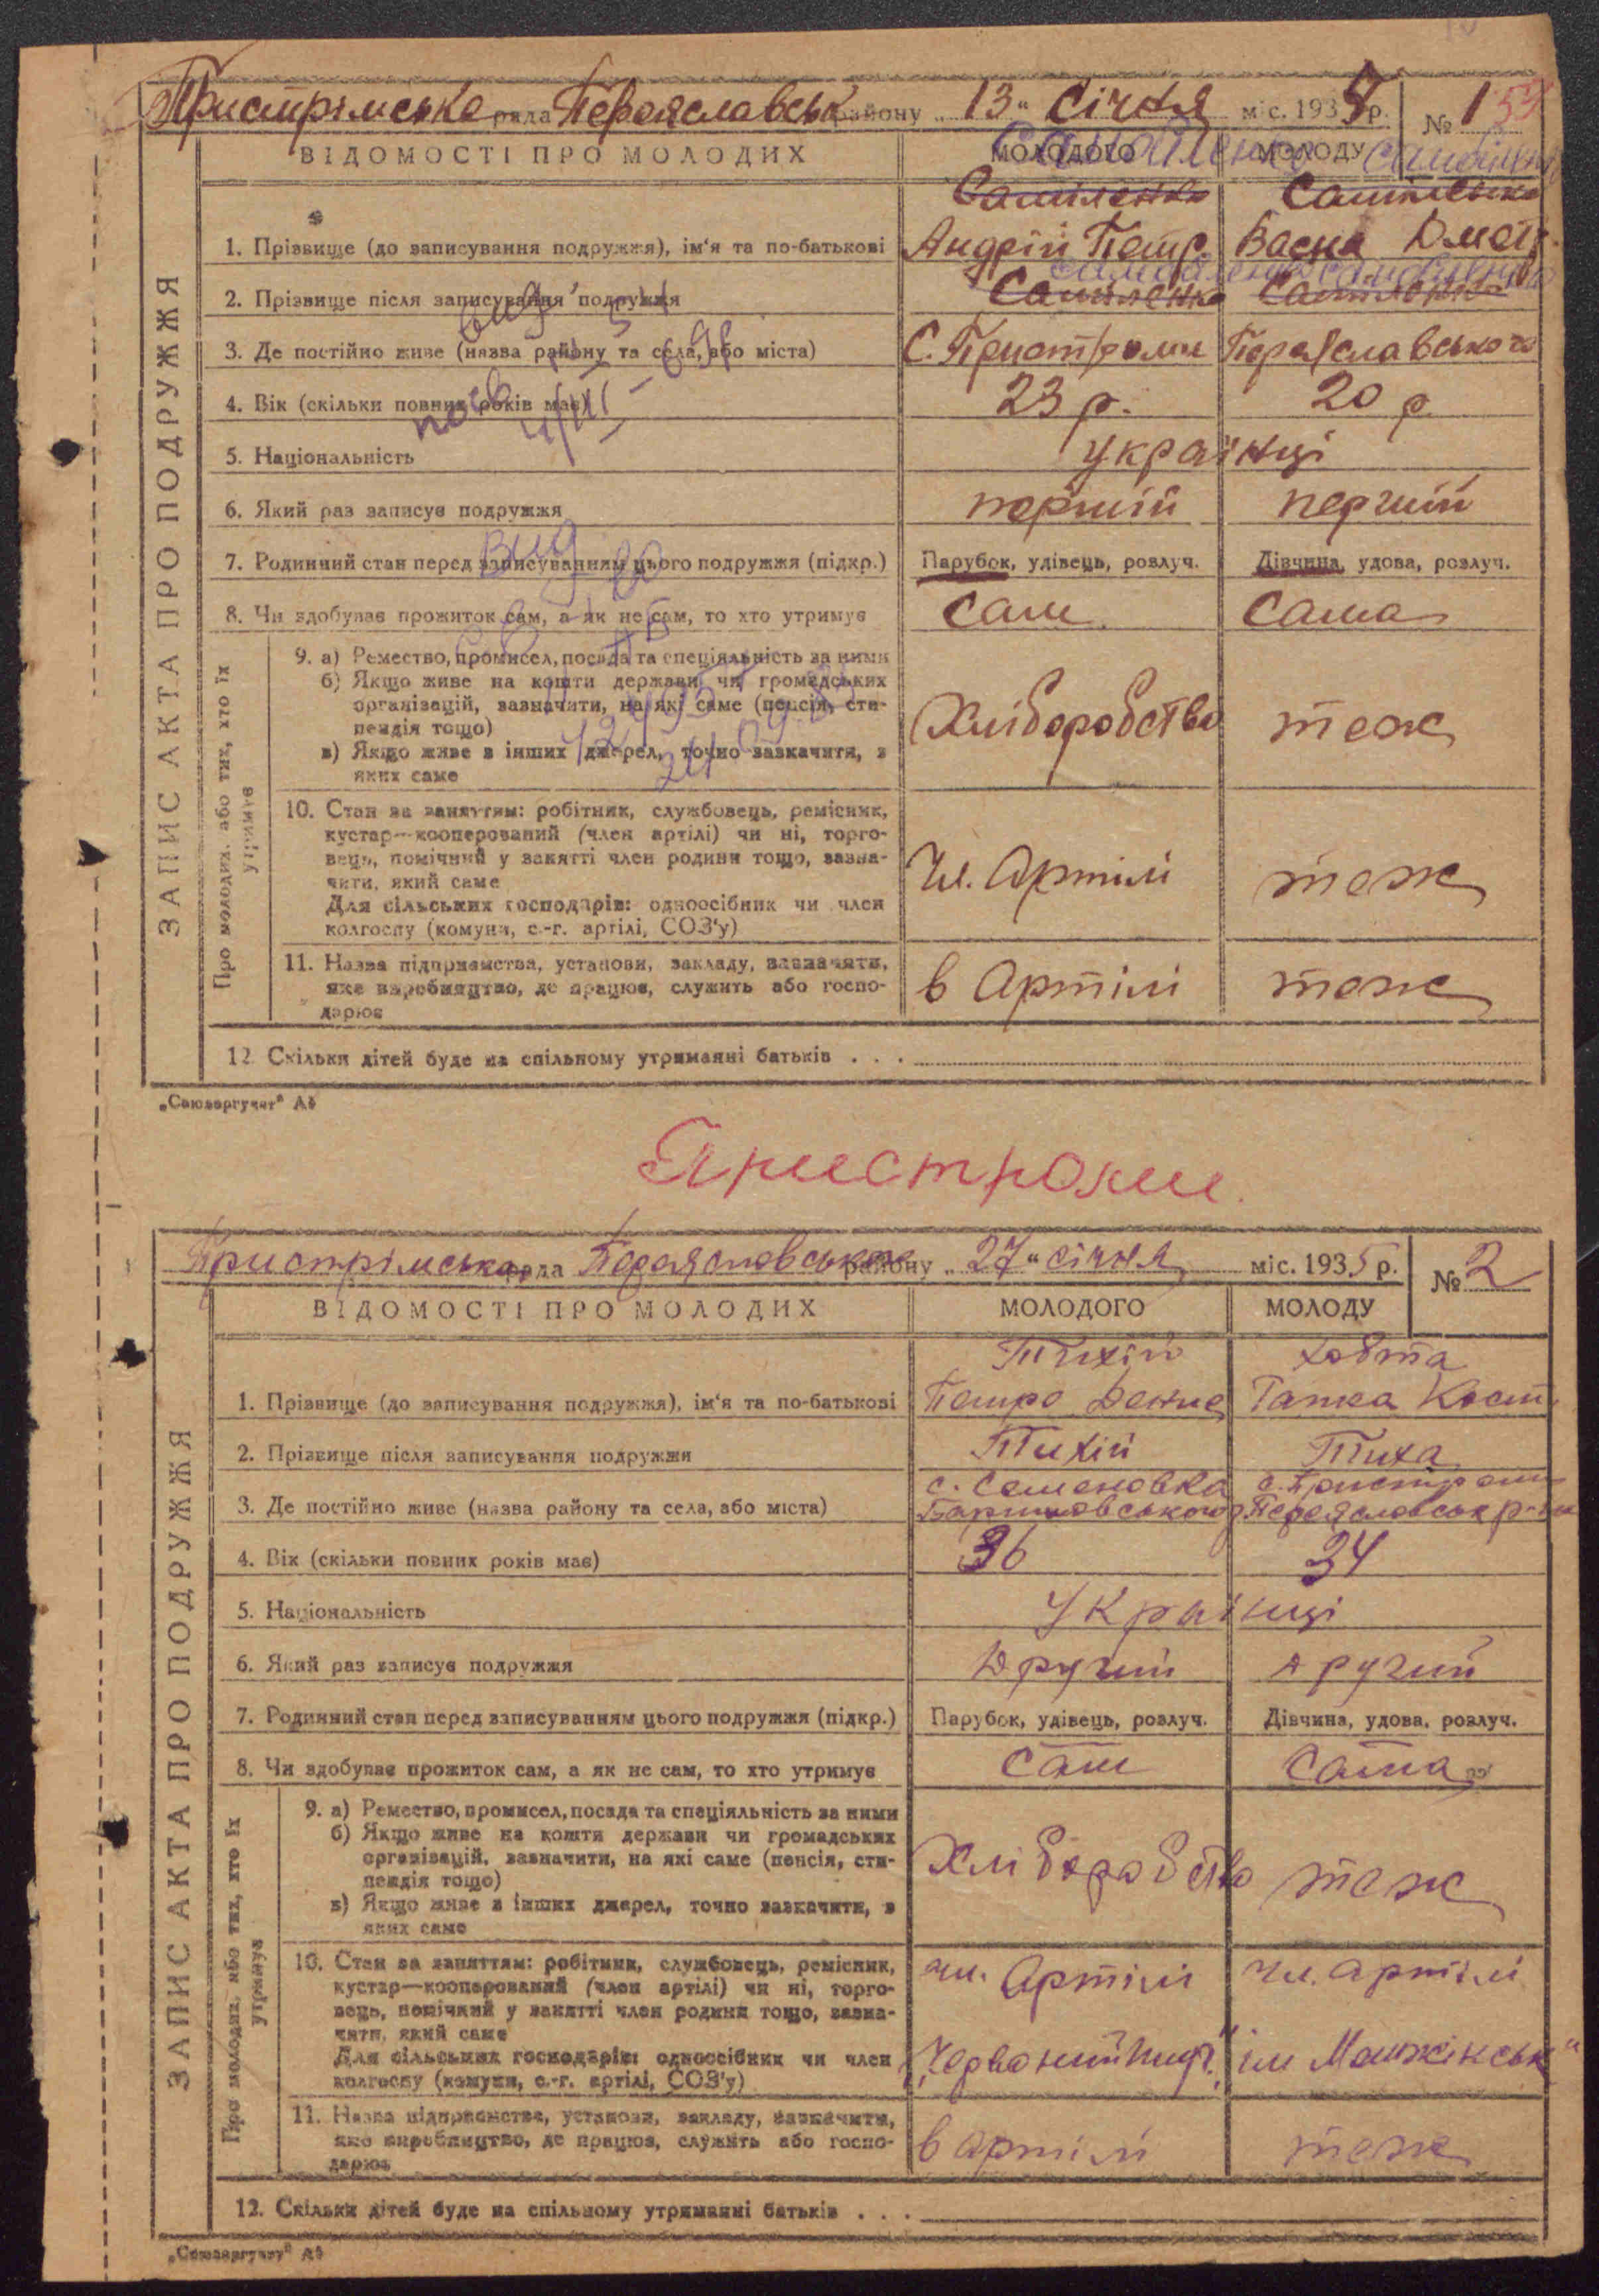 Пристрімська рада Переяславськ району „13“ Січня міс. 1935 р. № 1
ВІДОМОСТІ ПРО МОЛОДИХ МОЛОДОГО МОЛОДУ
1. Прізвище (до записування подружжя), ім'я та по-батькові Андрій Петр.
2. Прізвище після записування подружжя
3. Де постійно живе (назва району та села, або міста) С. Пристроми Переяславського
4. Вік (скільки повних років має) 23 р. 20 р
5. Національність Українці
6. Який раз записує подружжя перший перший
7. Родинний стан перед записуванням цього подружжя (підкр.) Парубок, удівець, розлуч. Дівчина, удова, розлуч.
8. Чи здобуває прожиток сам, а як не сам, то хто утримує Сам Сама
ЗАПИС АКТА ПРО ПОДРУЖЖЯ
Про молодих, або тих, хто їх утримує
9. а) Ремество, промисел, посада та спеціяльність за ними
б) Якщо живе на кошти держави чи громадських
організацій, зазначити, на які саме (пенсія, сти-
пендія тощо)
Хліборобство теж
в) Якщо живе з інших джерел, точно зазначити, з
яких саме
10. Стан за заняттям: робітник, службовець, ремісник,
кустар—кооперований (член артілі) чи ні, торго-
вець, помічний у занятті член родини тощо, зазна-
чити, який саме
Чл. Артілі теж
Для сільських господарів: одноосібник чи член
колгоспу (комуни, с.-г. артілі, СОЗ'у)
11. Назва підприємства, установи, закладу, зазначити,
яке виробництво, де працює, служить або госпо-
дарює
в Артілі теж
12. Скільки дітей буде на спільному утриманні батьків . . .
Пристроми.
Пристрімська рада Переяславського району „27“ січня міс. 1935 р. № 2
ВІДОМОСТІ ПРО МОЛОДИХ МОЛОДОГО МОЛОДУ
Тихій Ховта
1. Прізвище (до записування подружжя), ім'я та по-батькові Петро Денис Гапка Кост
2. Прізвище після записування подружжя Тихій Тиха
с. Семеновка с. Пристроми
3. Де постійно живе (назва району та села, або міста) Баришовського Переяславськ р-ну
4. Вік (скільки повних років має) 36 34
5. Національність Українці
6. Який раз записує подружжя Другий другий
7. Родинний стан перед записуванням цього подружжя (підкр.) Парубок, удівець, розлуч. Дівчина, удова, розлуч.
8. Чи здобуває прожиток сам, а як не сам, то хто утримує Сам Сама
ЗАПИС АКТА ПРО ПОДРУЖЖЯ
Про молодих, або тих, хто їх утримує
9. а) Ремество, промисел, посада та спеціяльність за ними
б) Якщо живе на кошти держави чи громадських
організацій, зазначити, на які саме (пенсія, сти-
пендія тощо)
Хліборобство теж
в) Якщо живе з інших джерел, точно зазначити, з
яких саме
10. Стан за заняттям: робітник, службовець, ремісник,
кустар—кооперований (член артілі) чи ні, торго-
вець, помічний у занятті член родини тощо, зазна-
чити, який саме
чл. Артілі чл. артілі
Для сільських господарів: одноосібник чи член
колгоспу (комуни, с.-г. артілі, СОЗ'у)
11. Назва підприємства, установи, закладу, зазначити,
яке виробництво, де працює, служить або госпо-
дарює
в артілі теж
12. Скільки дітей буде на спільному утриманні батьків . . .